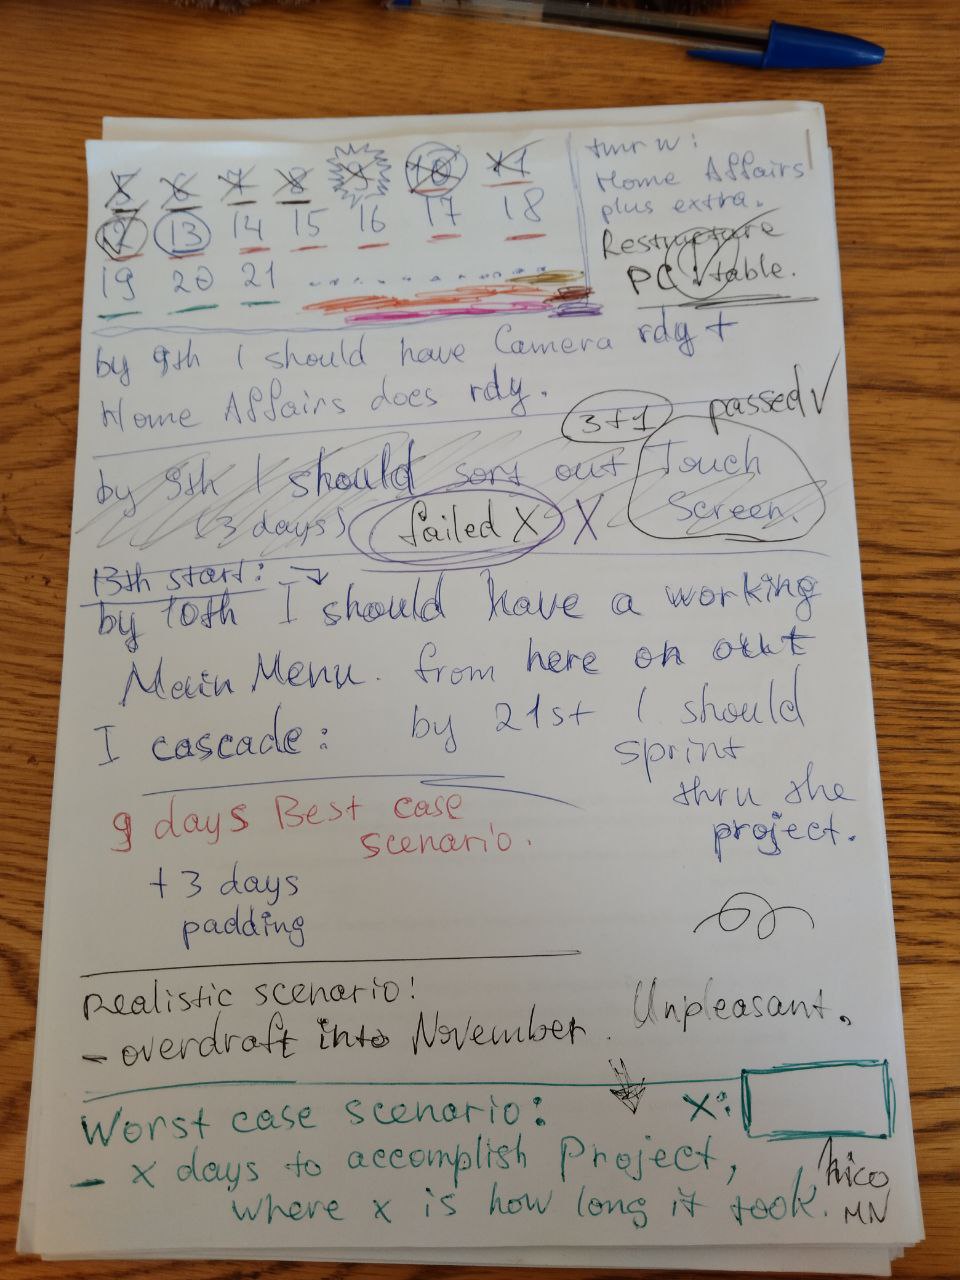 5 6 7 8 9 10 11
12 13 14 15 16 17 18
19 20 21
tmrw:
Home Affairs
plus extra.
Restructure
PC table.
by 9th I should have Camera rdy +
Home Affairs does rdy.
3+1
passed ✓
by 9th I should sort out Touch
Screen.
(3 days)
failed X X
13th start:
by 10th I should have a working
Main Menu. from here on out
I cascade: by 21st I should
sprint
thru the
project.
9 days Best case
scenario.
+ 3 days
padding
Realistic scenario:
- overdraft into November. Unpleasant.
Worst case scenario: x:
- x days to accomplish Project,
where x is how long it took.
Nico
MN